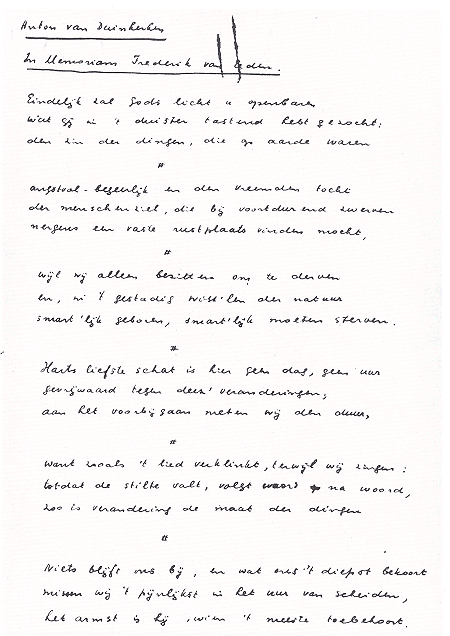 Anton van Duinkerken
In Memoriam Frederik van Eeden.
Eindelijk zal Gods licht u openbaren
Wat gij in 't duister tastend hebt gezocht:
den zin der dingen, die op aarde waren
#
angstval-begeerlijk en den vreemden tocht
der menschenziel, die bij voortdurend zwerven
nergens een vaste rustplaats vinden mocht,
#
wijl wij alleen bezitten om te derven
en, in 't gestadig wiss'len der natuur
smart'lijk geboren, smart'lijk moeten sterven.
#
Harts liefste schat is hier geen dag, geen uur
gevrijwaard tegen deez' veranderingen;
aan het voorbijgaan meten wij den duur,
#
want zooals 't lied verklinkt, terwijl wij zingen:
totdat de stilte valt, volgt woord na woord,
zoo is verandering de maat der dingen
#
Niets blijft ons bij, en wat ons 't diepst bekoort
missen wij 't pijnlijkst in het uur van scheiden,
het armst is hij, wien 't meeste toebehoort.